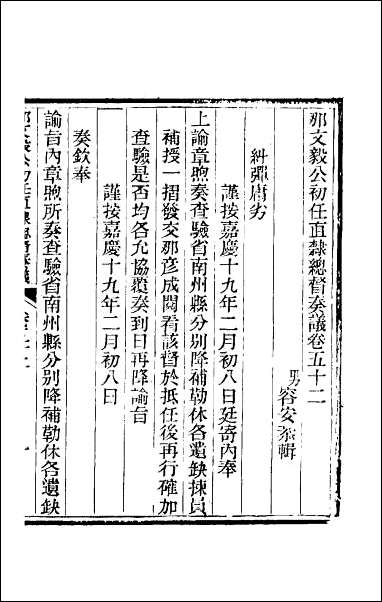 那文毅公初任直隸總督奏議卷五十二
男容安恭輯
糾彈庸劣
謹按嘉慶十九年二月初八日廷寄內奉
上諭章煦奏查驗省南州縣分別降補勒休各遺缺揀員
補授一摺發交那彥成閱看該督於抵任後再行確加
查驗是否均各允協覆奏到日再降諭旨
謹按嘉慶十九年二月初八日
奏欽奉
諭旨內章煦所奏查驗省南州縣分別降補勒休各遺缺
那文毅公初任直隸總督奏議